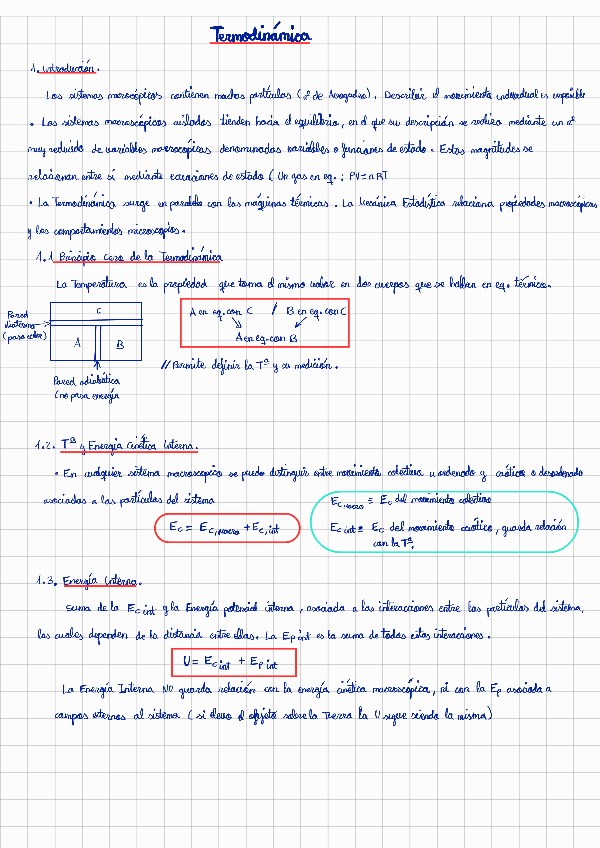 Termodinámica
1. Introducción.
Los sistemas macroscópicos contienen muchas partículas (nº de Avogadro). Describir el movimiento individual es imposible
• Los sistemas macroscópicos aislados tienden hacia el equilibrio, en el que su descripción se realiza mediante un nº
muy reducido de variables macroscópicas denominadas variables o funciones de estado. Estas magnitudes se
relacionan entre sí mediante ecuaciones de estado (Un gas en eq.: PV=nRT
• La Termodinámica surge en paralelo con las máquinas térmicas. La Mecánica Estadística relaciona propiedades macroscópicas
y los comportamientos microscopios.
1.1 Principio Cero de la Termodinámica
La Temperatura es la propiedad que toma el mismo valor en dos cuerpos que se hallan en eq. térmico.
Pared
diaterma
(pasa calor)
C
A
B
Pared adiabática
(no pasa energía
A en eq. con C / B en eq. con C
A en eq. con B
// Permite definir la Tª y su medición.
1.2. Tª y Energía Cinética Interna.
• En cualquier sistema macroscopico se puede distinguir entre movimiento colectivo u ordenado y caótico o desordenado
asociadas a las partículas del sistema
Ec = Ec,macro + Ec,int
Ec,macro ≡ Ec del movimiento colectivo
Ec int ≡ Ec del movimiento caótico, guarda relación
con la Tª.
1.3. Energía Interna.
Suma de la Ec int y la Energía potencial interna, asociada a las interacciones entre las partículas del sistema,
las cuales dependen de la distancia entre ellas. La Ep int es la suma de todas estas interacciones.
U = Ec int + Ep int
La Energía Interna NO guarda relación con la energía cinética macroscópica, ni con la Ep asociada a
campos externos al sistema (si elevo el objeto sobre la Tierra la U sigue siendo la misma)